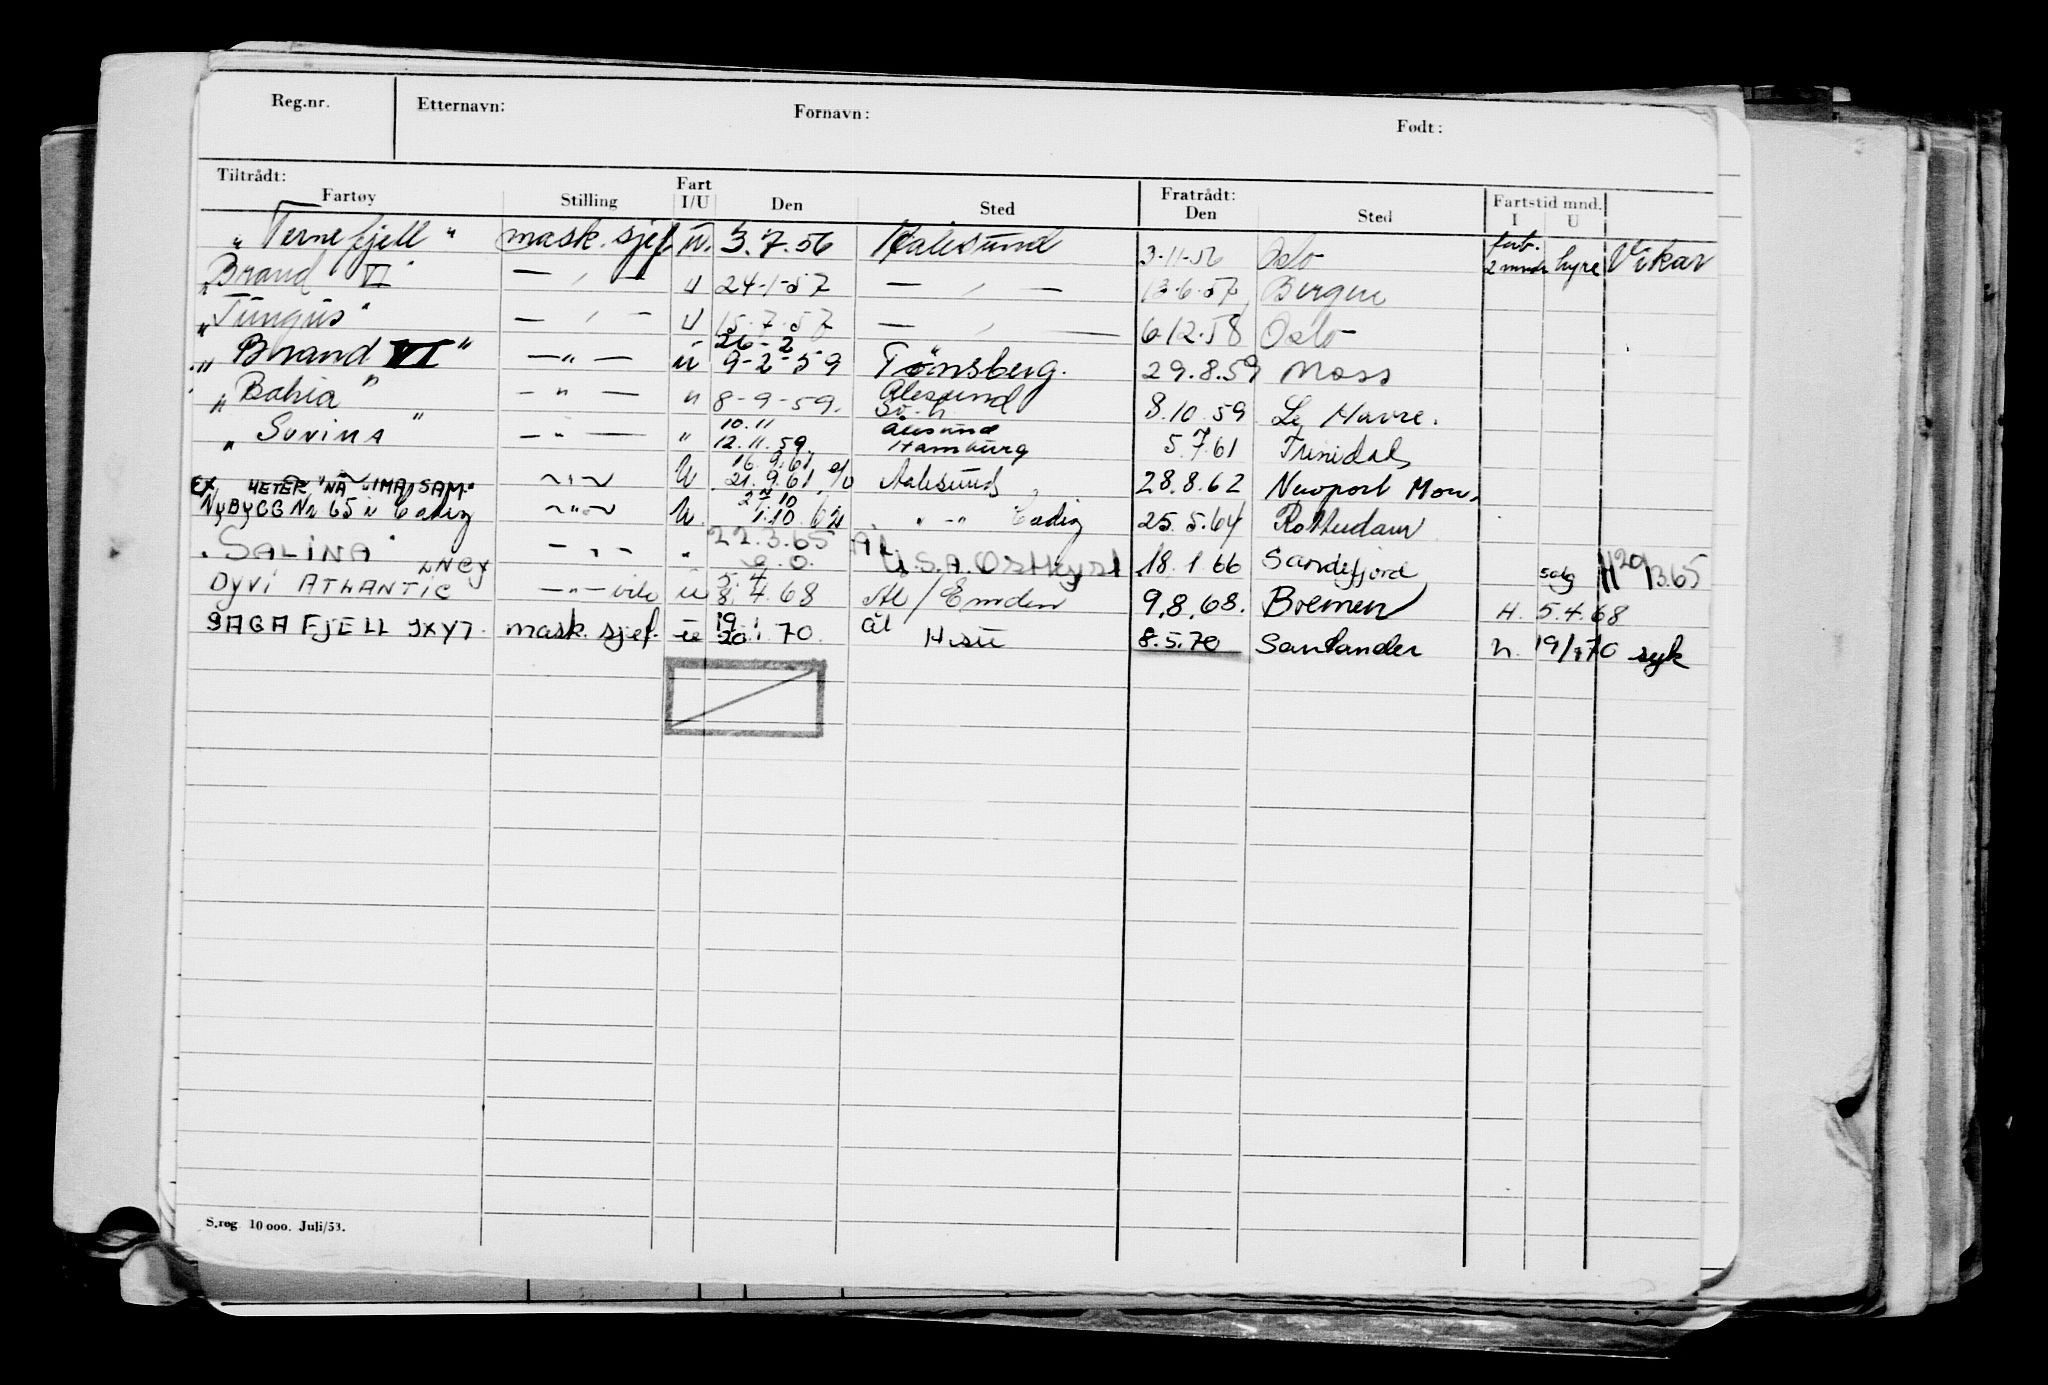 Reg.nr. Etternavn: Fornavn: Født:
Tiltrådt: Fratrådt:
Fartøy Stilling Fart I/U Den Sted Den Sted Fartstid mnd. I U
" Ternefjell " mask. sjef u. 3.7.56 Aalesund 3-11-56 Oslo forb. 2 mndr hyre Vikar
" Brand VI " — " — u 24-1-57 — " — 13-6-57 Bergen
" Tungus " — " — u 15.7.57 — " — 6.12.58 Oslo
" Brand VI " — " — u 26-2 9-2-59 Tønsberg. 29.8.59 Moss
" Bahia " — " — " 8-9-59. Ålesund 8.10.59 Le Havre.
" Sovina " — " — " 10.11 12.11.59 Ålesund Hamburg 5.7.61 Trinidad
EX HETER "NÅ "IMA SAM" — " — U 16.9.61 21.9.61 Aalesund 28.8.62 Newport Mon.
NyBYGG Nr 65 i Cadiz — " — U 2/10 1.10.62 " — " Cadiz 25.5.64 Rotterdam
" SALINA " — " — " 22.3.65 Ål U.S.A. Østkyst 18.1.66 Sandefjord salg H 29/3.65
DyVi ATLANTIC LNCY — " — u 5.4 8.4.68 Ål / Emden 9.8.68. Bremen H. 5.4.68
SAGAFJELL JXYJ. mask. sjef. u 19 20.1.70. Ål 8.5.70 Santander H. 19/1 70 syk
S.reg 10 000. Juli/53.